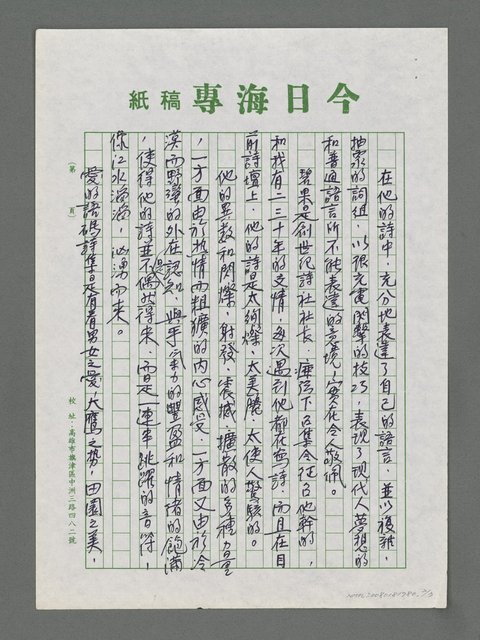 今日海專稿紙
在他的詩中，充分地表達了自己的語言，並以複雜，
抽象的詞組，以很充電閃擊的技巧，表現了現代人夢想的
和普通語言所不能表達的意境，實在令人敬佩。
碧果是創世紀詩社社長，瘂弦下召集令征召他幹的，
和我有一二三十年的交情，每次遇到他都在寫詩，而且在目
前詩壇上，他的詩是太絢燦，太美麗，太使人驚駭的。
他的異數和閃爍，射發，震撼，擴散的多種力量
，一方面由於熱情而粗獷的內心感受，一方面又由於冷
漠而野讙的外在認知，與手氣力的豐盈和情諸的飽滿
，使得他的詩並不是偶然得來，而是一連串跳躍的音符，
像江水滔滔，汹湧而來。
愛的語碼詩集是有着男女之愛，大鷹之勢，田園之美，
（第　頁）
校址：高雄市旗津區中洲三路四八二號